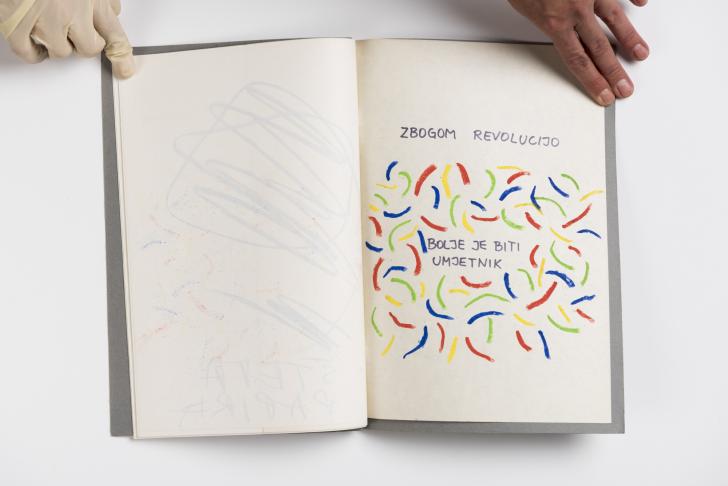 ZBOGOM REVOLUCIJO
BOLJE JE BITI
UMJETNIK